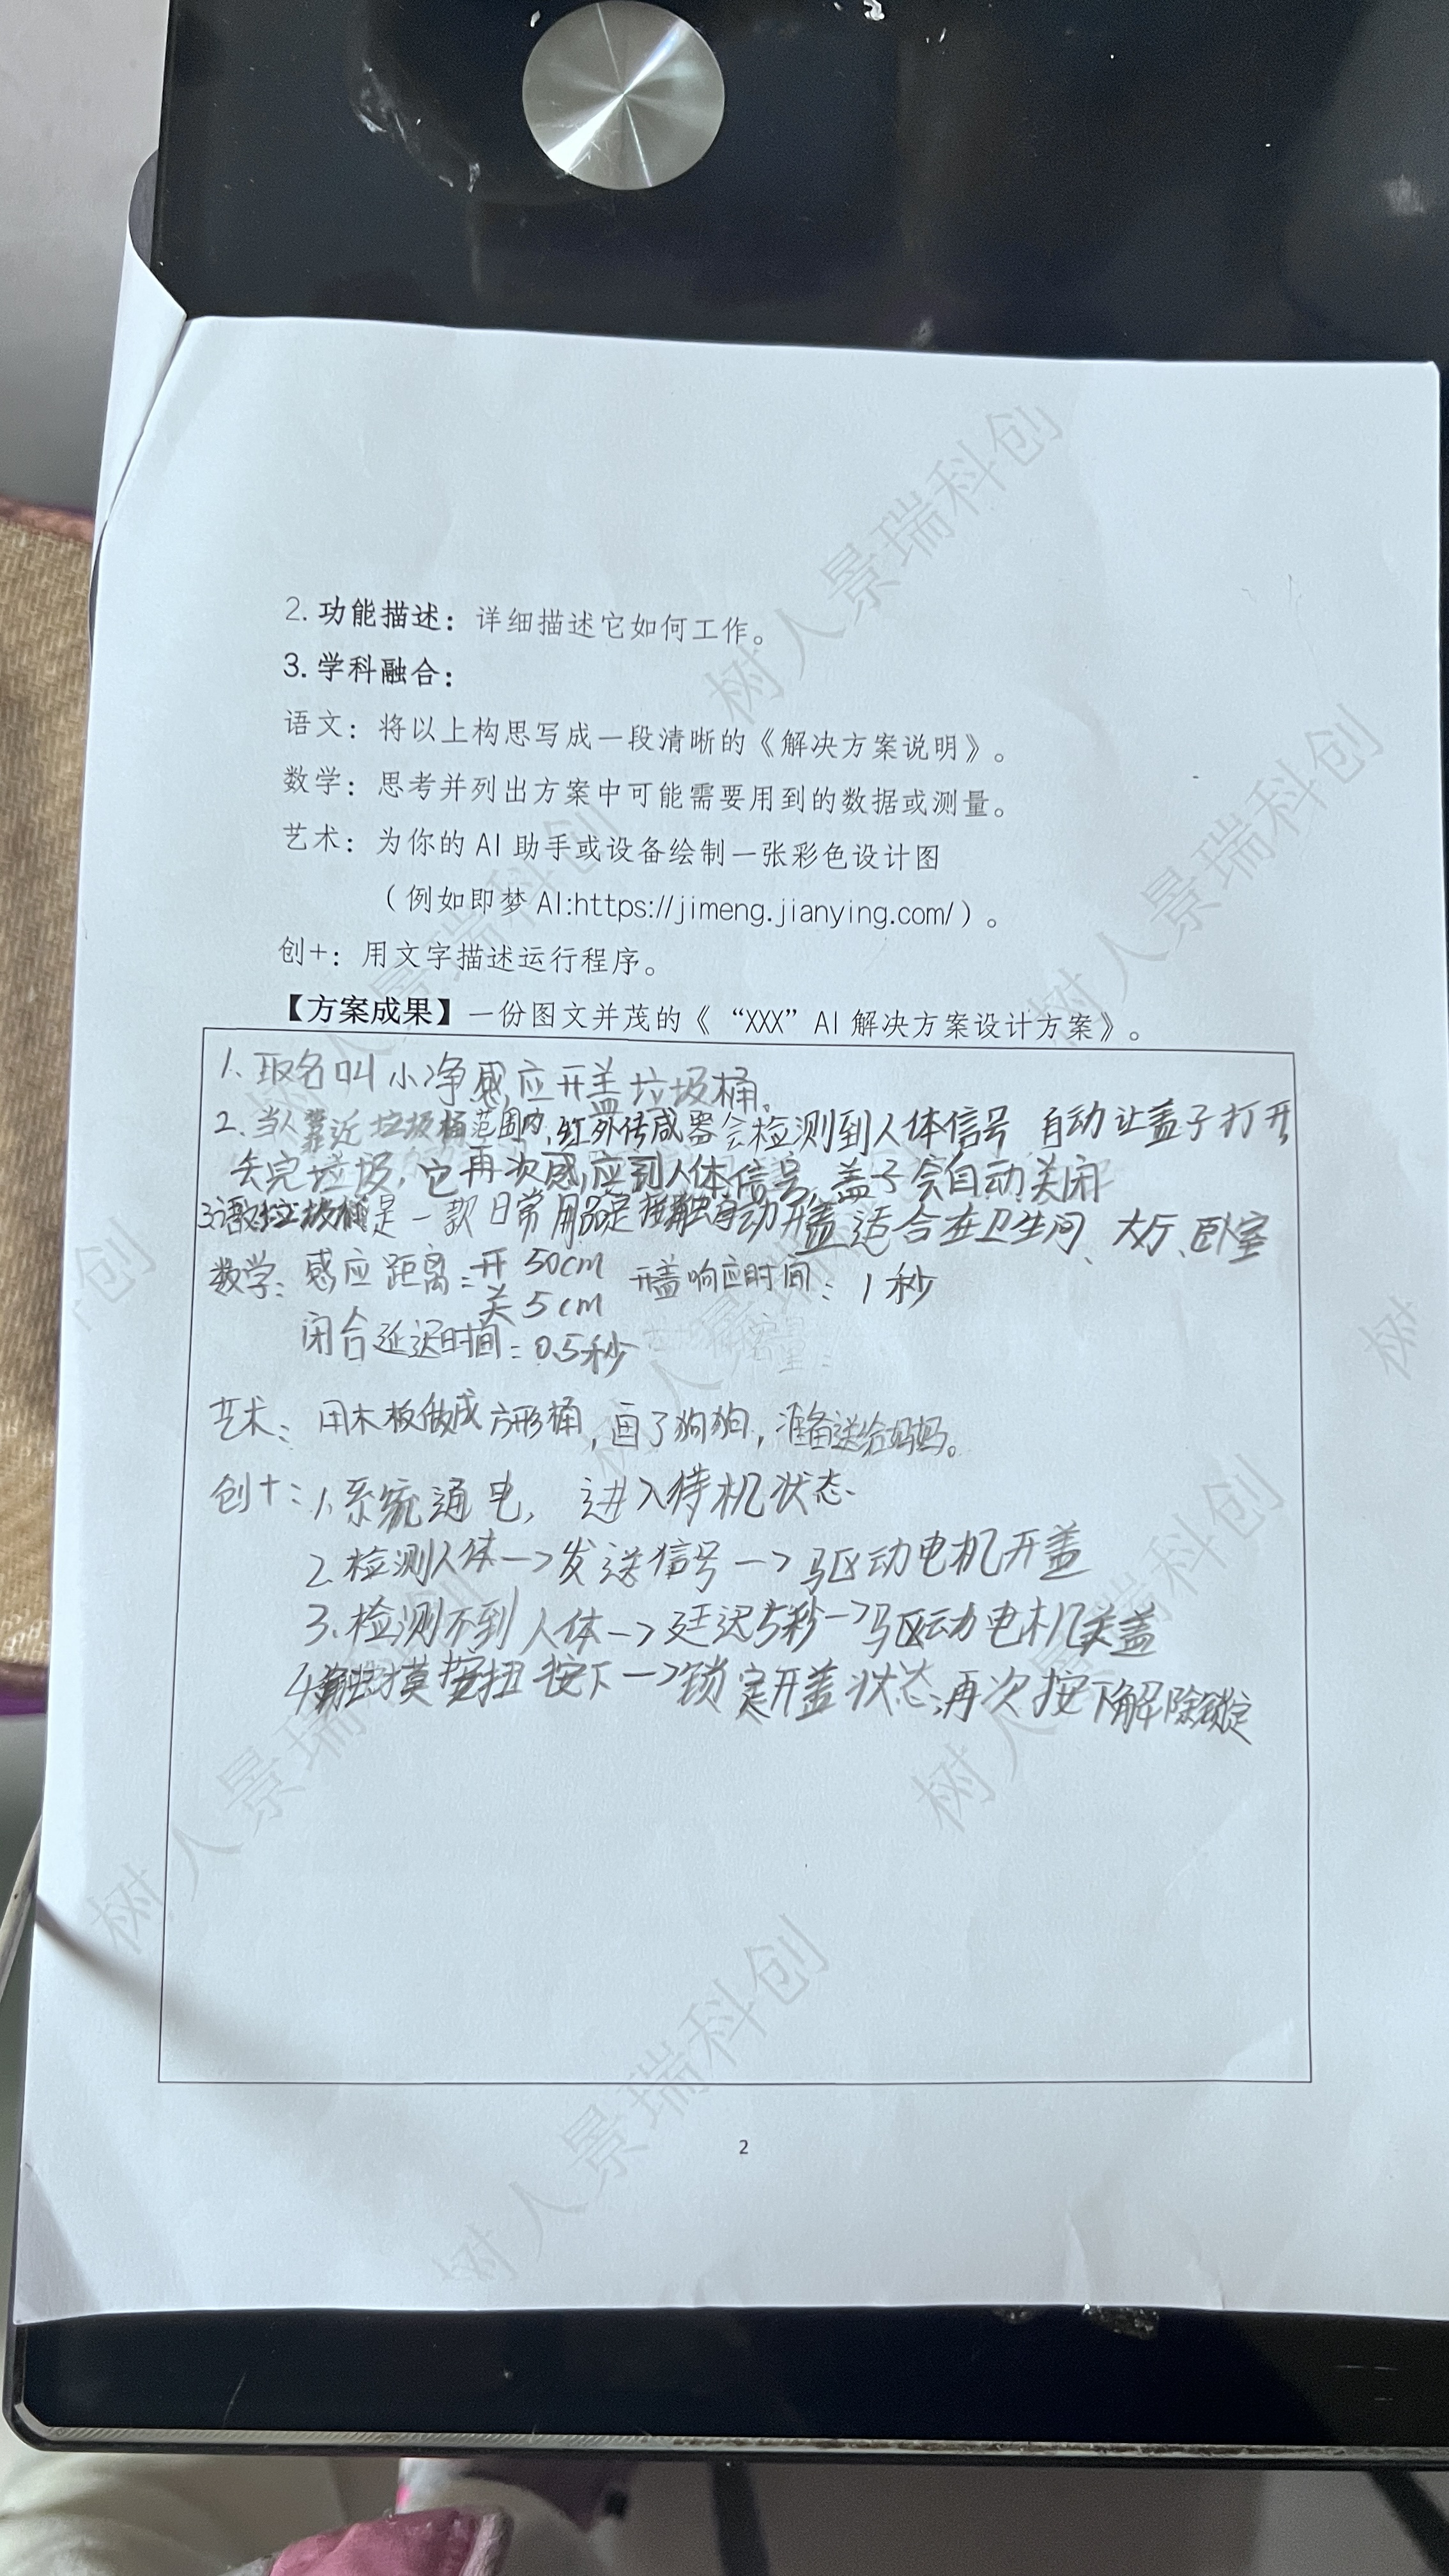 2. 功能描述：详细描述它如何工作。
3. 学科融合：
语文：将以上构思写成一段清晰的《解决方案说明》。
数学：思考并列出方案中可能需要用到的数据或测量。
艺术：为你的 AI 助手或设备绘制一张彩色设计图
（例如即梦 AI:https://jimeng.jianying.com/）。
创+：用文字描述运行程序。
【方案成果】一份图文并茂的《 “XXX” AI 解决方案设计方案》。
1. 取名叫小净感应开盖垃圾桶。
2. 当人靠近垃圾桶范围内,红外传感器会检测到人体信号 自动让盖子打开,
丢完垃圾,它再次感应到人体信号,盖子会自动关闭
3.语文:垃圾桶是一款日常用品 自动开盖适合在卫生间、大厅、卧室
数学：感应距离：开 50cm 开盖响应时间：1秒
关 5cm
闭合延迟时间：0.5秒
艺术：用木板做成方形桶,画了狗狗,准备送给妈妈。
创+：1.系统通电, 进入待机状态.
2.检测人体—>发送信号—>驱动电机开盖
3.检测不到人体—>延迟5秒—>驱动电机关盖
4.触摸按扭按下—>锁定开盖状态,再次按下解除锁定
2
树人景瑞科创
树人景瑞科创
树人景瑞科创
树人景瑞科创
树人景瑞科创
树人景瑞科创
创
树